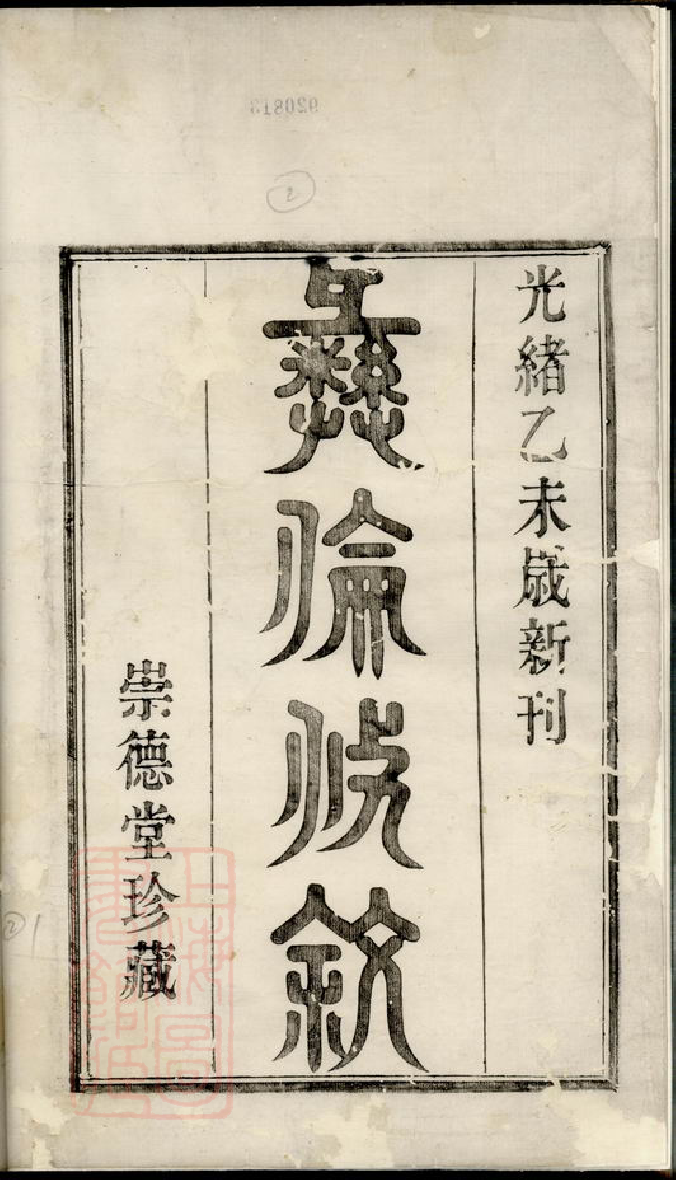 光緒乙未歲新刊
彝倫攸敘
崇德堂珍藏
920813
2
2 1